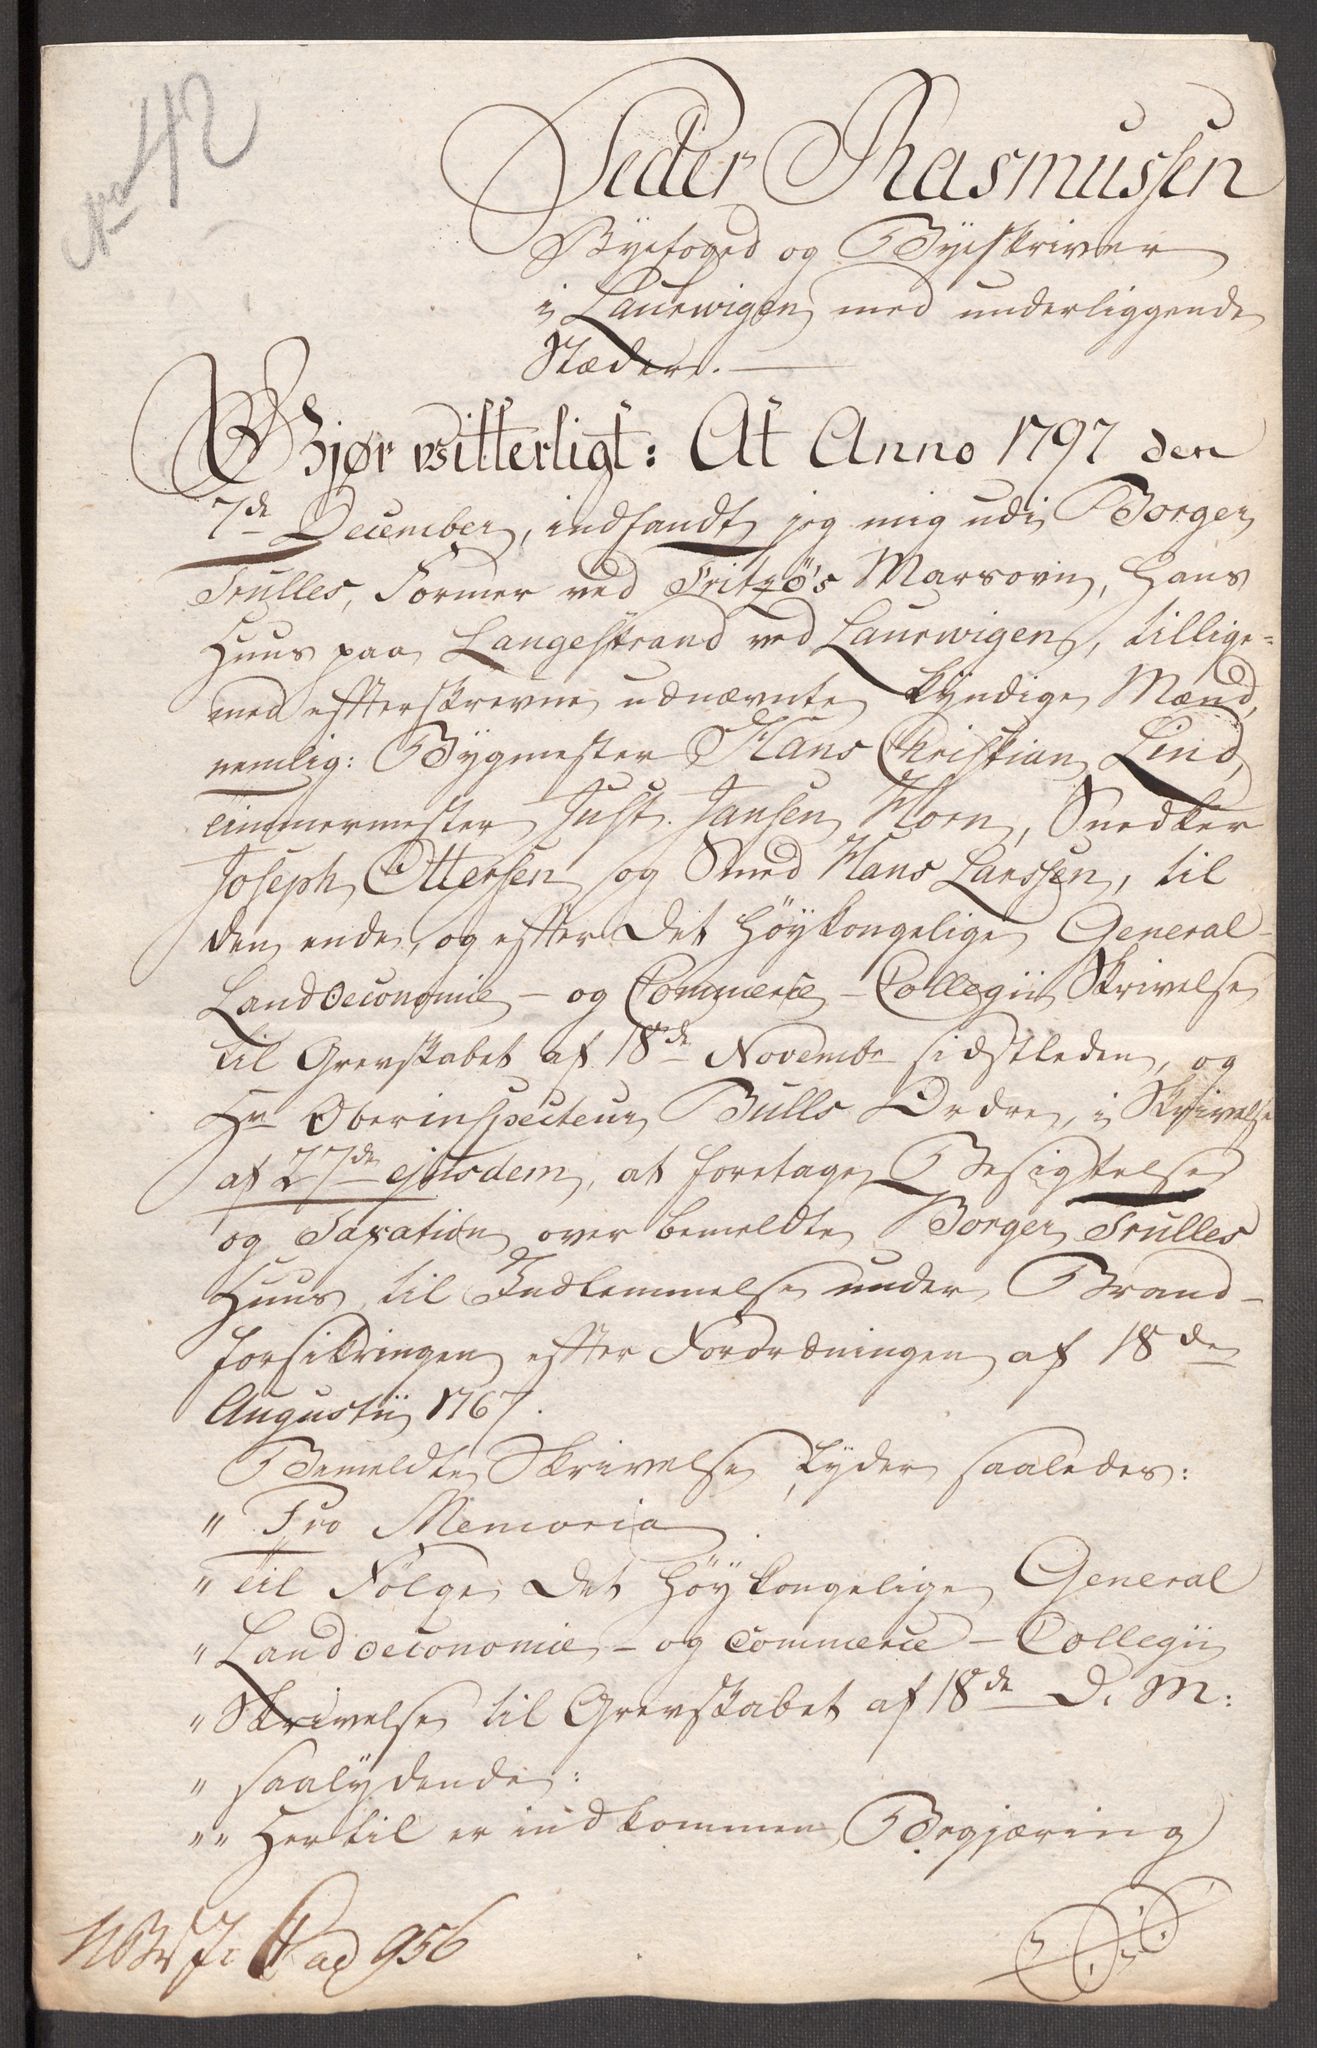 Nro 42
Peder Rasmussen
Byefoged og Byeskriver
i Laurwigen med underliggende
Stæder. —
Gjør witterligt: At Anno 1797 den
7de December, indfandt jeg mig udi Borger
Trulles, Former ved Fritzö's Marsovn, Hans
Huus paa Langestrand ved Laurwigen, tillige=
med efterskrevne udnævnte kyndige Mænd,
nemlig: Bygmester Hans Christian Lind,
Timmermester Just Jansen Horn, Snedker
Joseph Ottersen og Smed Hans Larssen, til
den ende, og efter Det Höykongelige General-
Landoeconomie- og Commerce-Collegii Skrivelse
til Grevskabet af 18de Novembr sidstleden, og
Hr Oberinspecteur Bulls Ordre, i Skrivelse
af 27de ejusdem, at foretage Besigtelse
og Taxation over bemeldte Borger Trulles
Huus til Indlemmelse under Brand-
forsikringen efter Forordningen af 18de
Augustii 1767.
Bemeldte Skrivelse lyder saaledes:
" Pro Memoria
" Til Fölge Det Höykongelige General
" Landoeconomie- og Commerce-Collegii
" Skrivelse til Grevskabet af 18de D. M:
" saalydende:
" " Hertil er indkommen Begjæring
956